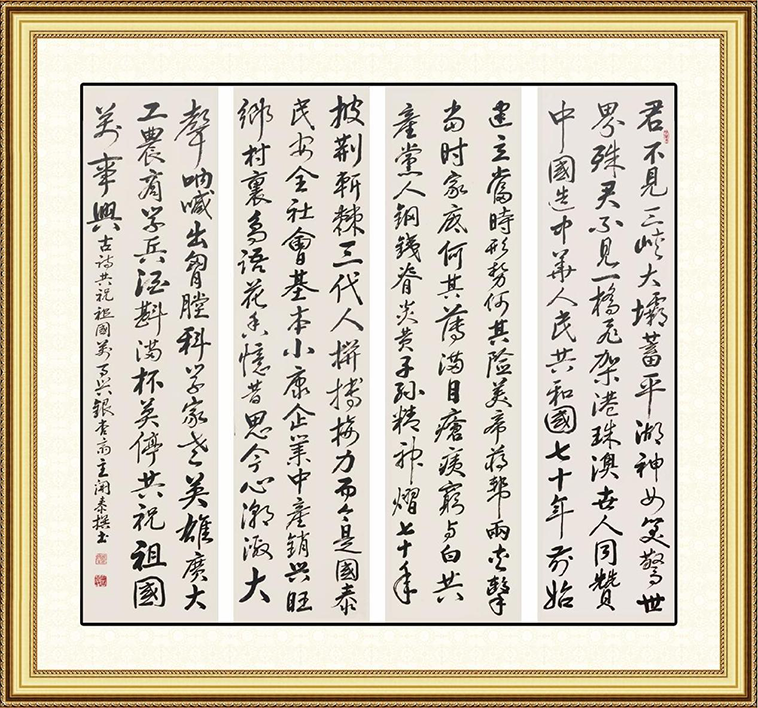 君不見三峡大壩蓄平湖神女笑驚世
界殊君不見一橋飛架港珠澳世人同贊
中國造中華人民共和國七十年前始
建立當時形势何其险美帝蒋幫兩夹擊
當时家底何其薄满目瘡痍窮与白共
產黨人钢鐵脊炎黄子孙精神熠七十年
披荆斬棘三代人拼搏接力而今是國泰
民安全社會基本小康企業中產銷兴旺
鄉村裏鳥語花香憶昔思今心潮激大
聲呐喊出胸膛科学家老英雄廣大
工農商学兵酒斟满杯莫停共祝祖國
萬事興 古诗共祝祖國萬事兴銀杏斋主泰撰书